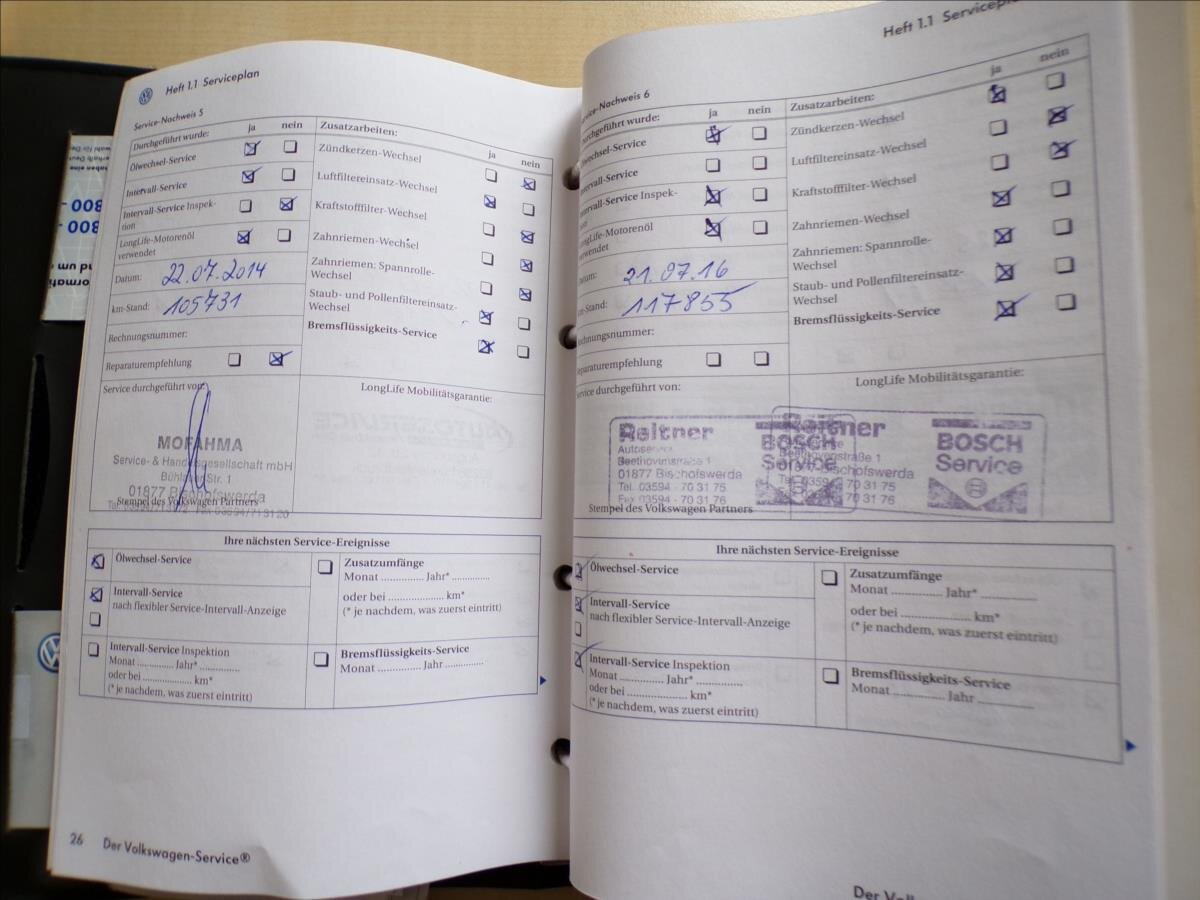 Heft 1.1 Serviceplan
Service-Nachweis 5
Durchgeführt wurde: ja nein
Ölwechsel-Service
Intervall-Service
Intervall-Service Inspek-
tion
LongLife-Motorenöl
verwendet
Datum: 22.07.2014
km-Stand: 105731
Rechnungsnummer:
Reparaturempfehlung
Zusatzarbeiten: ja nein
Zündkerzen-Wechsel
Luftfiltereinsatz-Wechsel
Kraftstofffilter-Wechsel
Zahnriemen-Wechsel
Zahnriemen: Spannrolle-
Wechsel
Staub- und Pollenfiltereinsatz-
Wechsel
Bremsflüssigkeits-Service
Service durchgeführt von:
MOFAHMA
Service- & Handelsgesellschaft mbH
Str. 1
01877 Bischofswerda
Stempel des Volkswagen Partners
LongLife Mobilitätsgarantie:
Ihre nächsten Service-Ereignisse
Ölwechsel-Service
Intervall-Service
nach flexibler Service-Intervall-Anzeige
Intervall-Service Inspektion
Monat ............. Jahr* .............
oder bei ..................... km*
(* je nachdem, was zuerst eintritt)
Zusatzumfänge
Monat .............. Jahr* .............
oder bei ..................... km*
(* je nachdem, was zuerst eintritt)
Bremsflüssigkeits-Service
Monat ............. Jahr .............
26 Der Volkswagen-Service®
Heft 1.1
Service-Nachweis 6
Durchgeführt wurde: ja nein
Ölwechsel-Service
Intervall-Service
Intervall-Service Inspek-
tion
LongLife-Motorenöl
verwendet
Datum: 21.07.16
km-Stand: 117855
Rechnungsnummer:
Reparaturempfehlung
Zusatzarbeiten: ja nein
Zündkerzen-Wechsel
Luftfiltereinsatz-Wechsel
Kraftstofffilter-Wechsel
Zahnriemen-Wechsel
Zahnriemen: Spannrolle-
Wechsel
Staub- und Pollenfiltereinsatz-
Wechsel
Bremsflüssigkeits-Service
Service durchgeführt von:
LongLife Mobilitätsgarantie:
Reitner
Autoservice
Beethovenstraße 1
01877 Bischofswerda
Tel. 03594 - 70 31 75
Fax 03594 - 70 31 76
BOSCH
Service
Reitner
Beethovenstraße 1
Bischofswerda
Tel. 03594 - 70 31 75
70 31 76
BOSCH
Service
Stempel des Volkswagen Partners
Ihre nächsten Service-Ereignisse
Ölwechsel-Service
Intervall-Service
nach flexibler Service-Intervall-Anzeige
Intervall-Service Inspektion
Monat ............. Jahr* .............
oder bei ..................... km*
(* je nachdem, was zuerst eintritt)
Zusatzumfänge
Monat .............. Jahr* .............
oder bei ..................... km*
(* je nachdem, was zuerst eintritt)
Bremsflüssigkeits-Service
Monat .............. Jahr ..............
Der